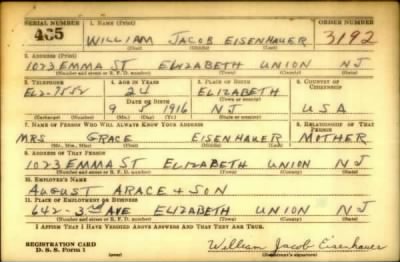 SERIAL NUMBER 1. NAME (Print) ORDER NUMBER
465 WILLIAM JACOB EISENHAUER 3192
(First) (Middle) (Last)
2. ADDRESS (Print)
1023 EMMA ST ELIZABETH UNION NJ
(Number and street or R. F. D. number) (Town) (County) (State)
3. TELEPHONE 4. AGE IN YEARS 5. PLACE OF BIRTH 6. COUNTRY OF CITIZENSHIP
EL2-7552 24 ELIZABETH
DATE OF BIRTH (Town or county)
9 8 1916 NJ USA
(Mo.) (Day) (Yr.) (State or country)
7. NAME OF PERSON WHO WILL ALWAYS KNOW YOUR ADDRESS 8. RELATIONSHIP OF THAT PERSON
MRS GRACE EISENHAUER MOTHER
(Mr., Mrs., Miss) (First) (Middle) (Last)
9. ADDRESS OF THAT PERSON
1023 EMMA ST ELIZABETH UNION NJ
(Number and street or R. F. D. number) (Town) (County) (State)
10. EMPLOYER'S NAME
AUGUST ARACE & SON
11. PLACE OF EMPLOYMENT OR BUSINESS
642-3RD AVE ELIZABETH UNION NJ
(Number and street or R. F. D. number) (Town) (County) (State)
I AFFIRM THAT I HAVE VERIFIED ABOVE ANSWERS AND THAT THEY ARE TRUE.
REGISTRATION CARD
D. S. S. Form 1 (over) William Jacob Eisenhauer
(Registrant's signature)